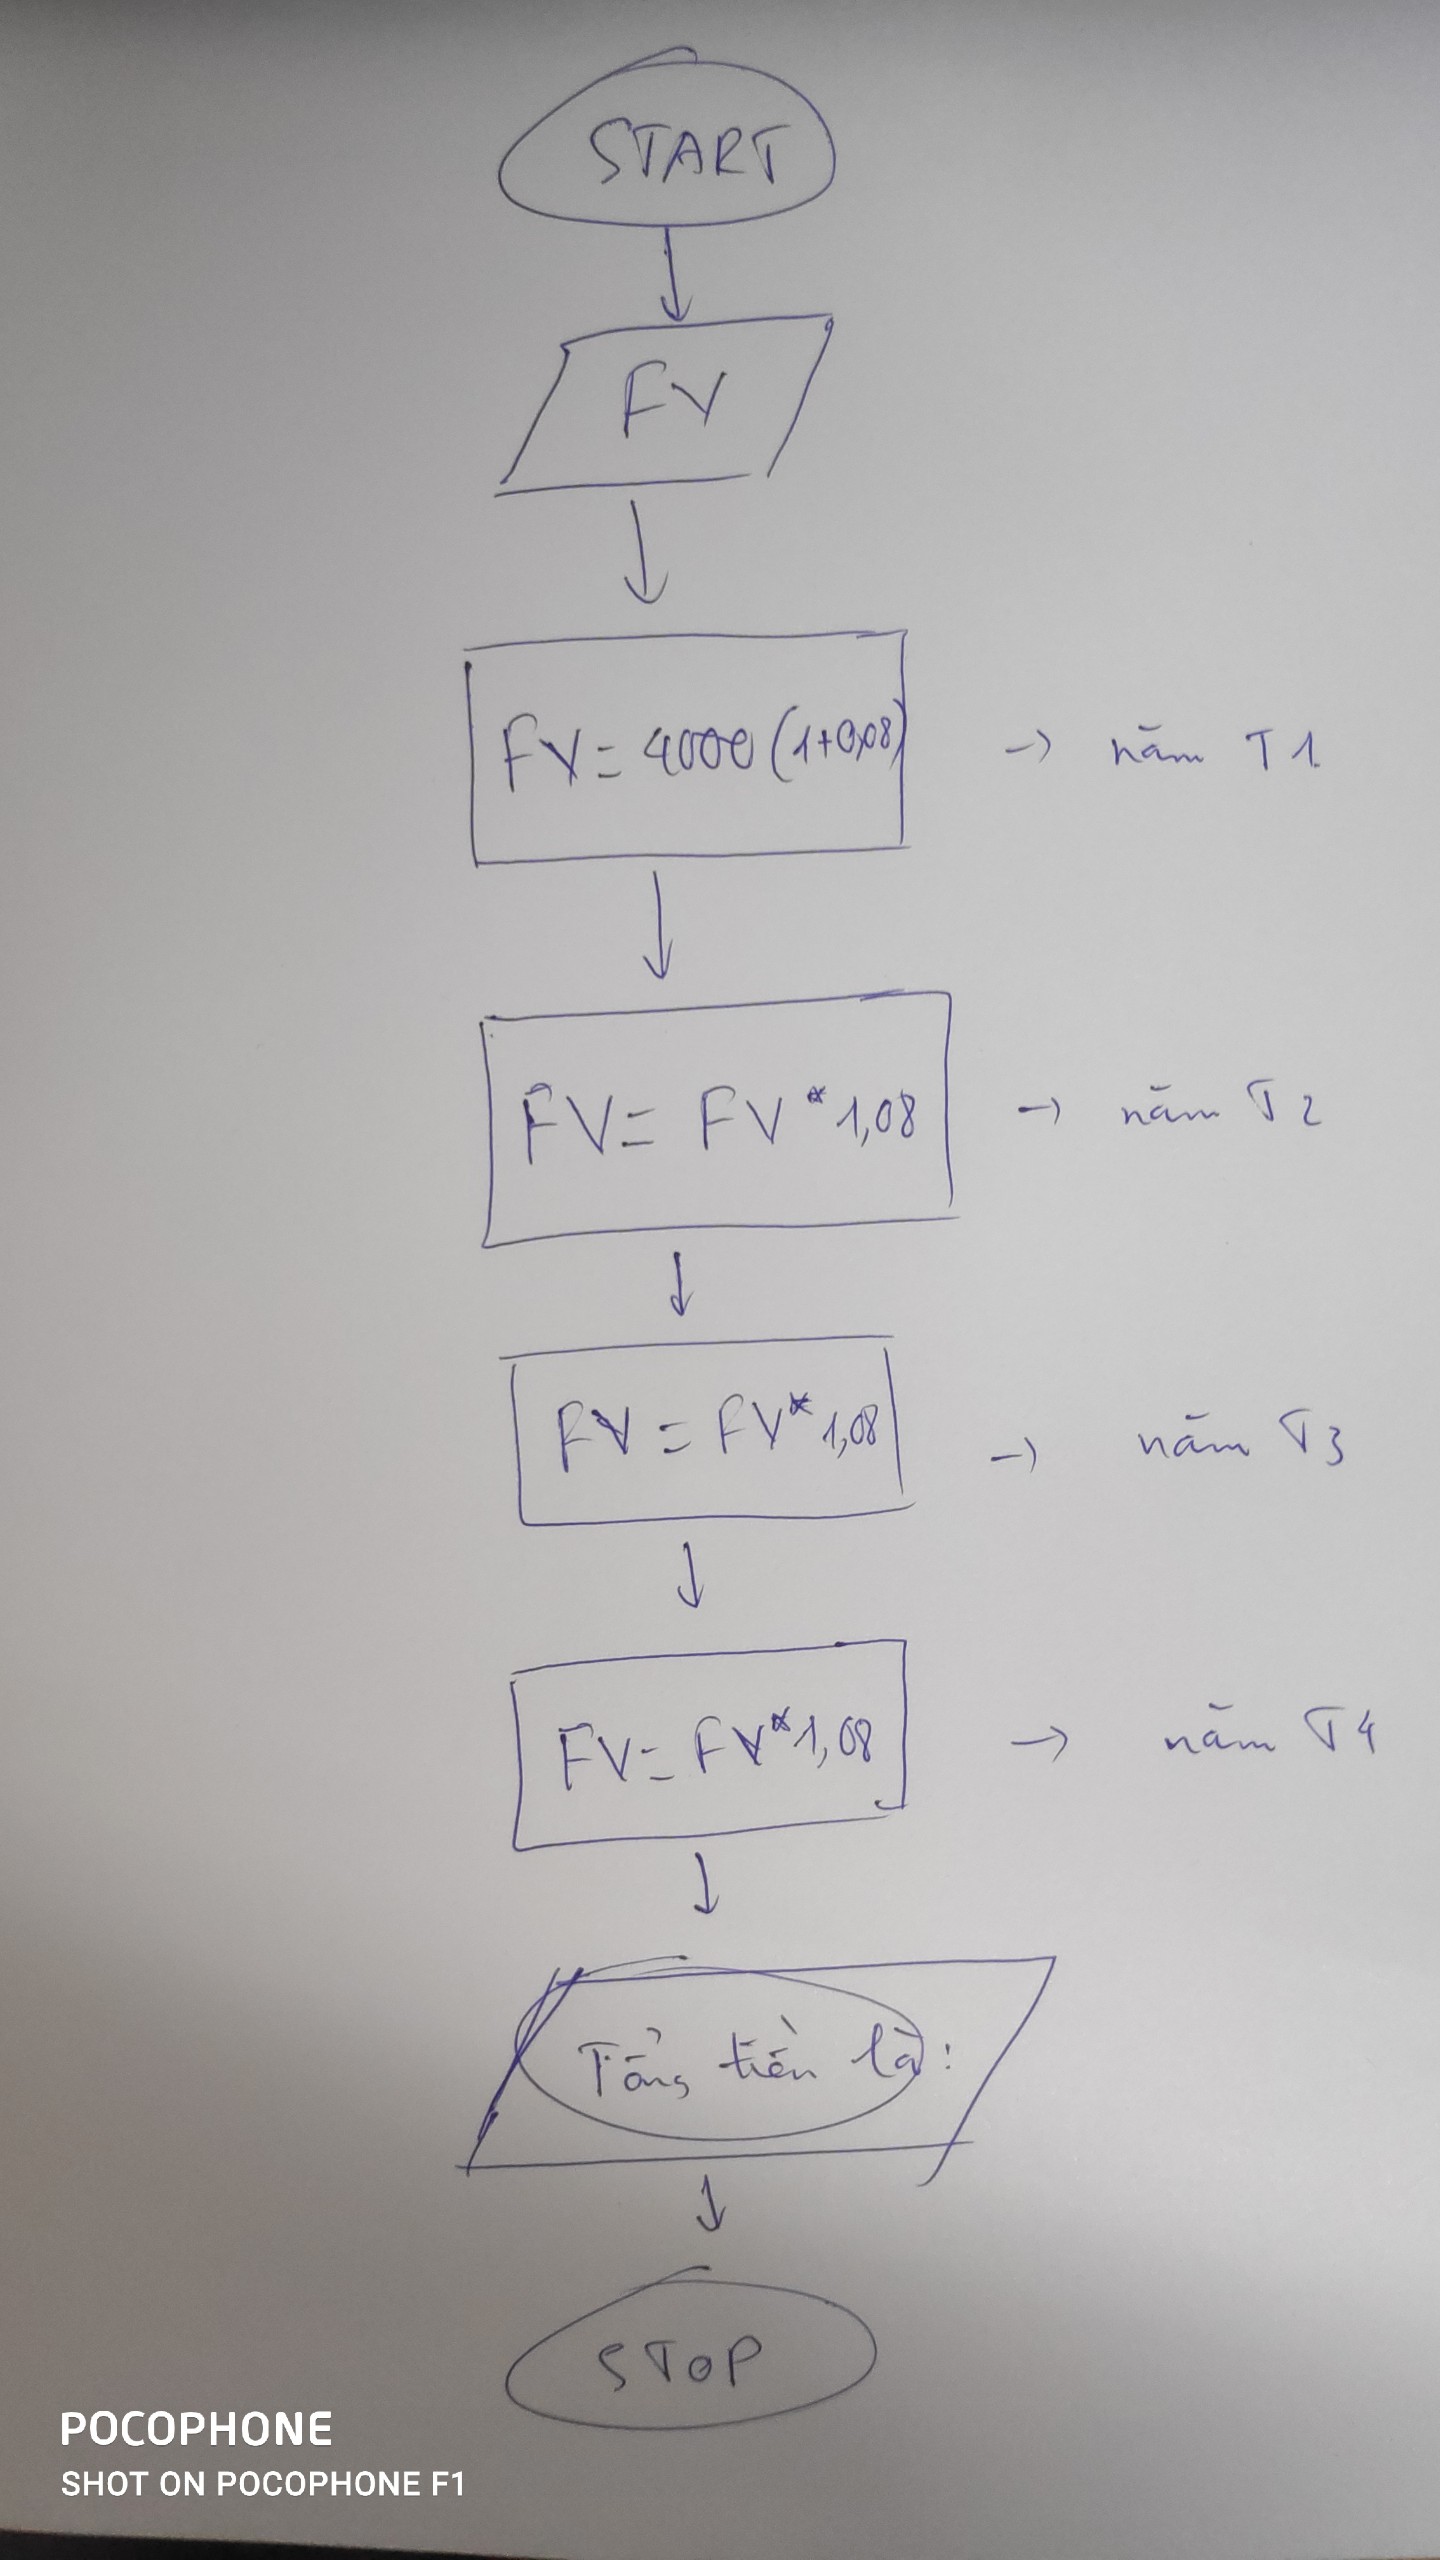 START
FV
FV = 4000 (1+0,08) → năm T1
FV = FV * 1,08 → năm T2
FV = FV * 1,08 → năm T3
FV = FV * 1,08 → năm T4
Tổng tiền là:
STOP
POCOPHONE
SHOT ON POCOPHONE F1